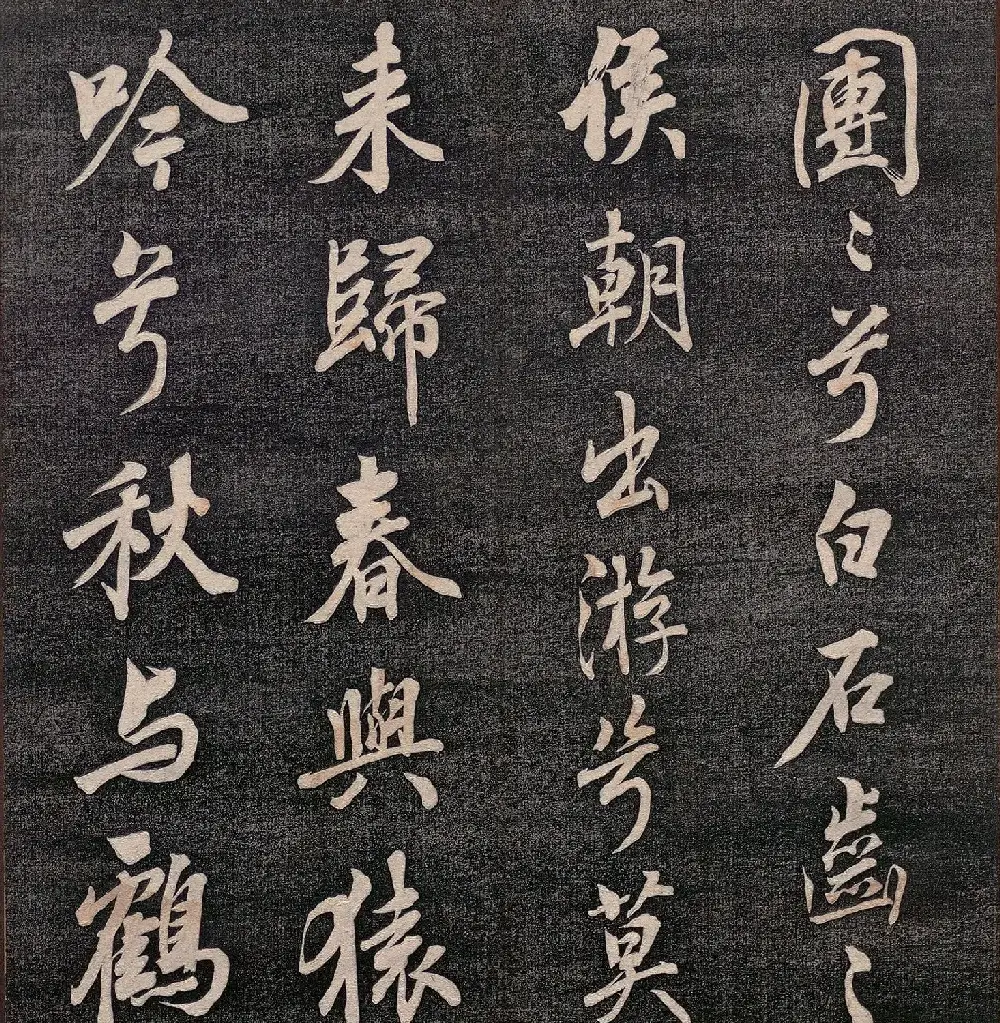 團〻兮白石齒〻
侯朝出游兮莫
来歸春與猿
吟兮秋与鶴